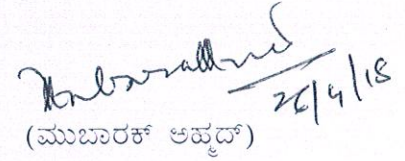 26/4/18
(ಮುಬಾರಕ್ ಅಹ್ಮದ್)